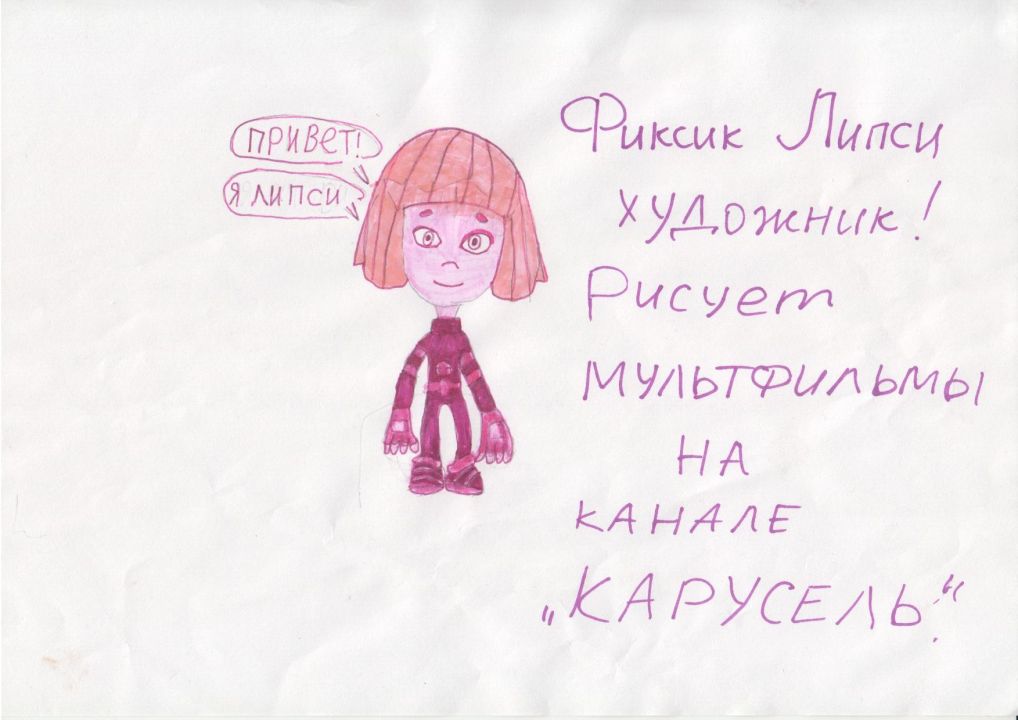 ПРИВЕТ!
Я ЛИПСИ
Фиксик Липси
художник!
Рисует
мультфильмы
НА
КАНАЛЕ
„КАРУСЕЛЬ."